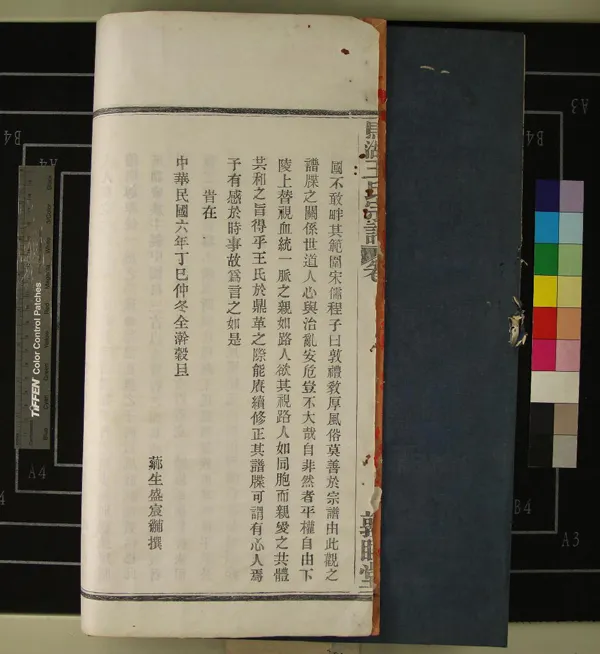 國不敢畔其範圍宋儒程子曰敦禮敎厚風俗莫善於宗譜由此觀之
譜牒之關係世道人心與治亂安危豈不大哉自非然者平權自由下
陵上替視血統一脈之親如路人欲其視路人如同胞而親愛之共體
共和之旨得乎王氏於鼎革之際能賡續修正其譜牒可謂有心人焉
予有感於時事故爲言之如是
旹在
中華民國六年丁巳仲冬全澣穀旦
生盛宸黼撰
湖王氏宗譜 卷
敦睦堂
TIFFEN Color Control Patches
B4
A4
A3
B4
A4
B4
A3